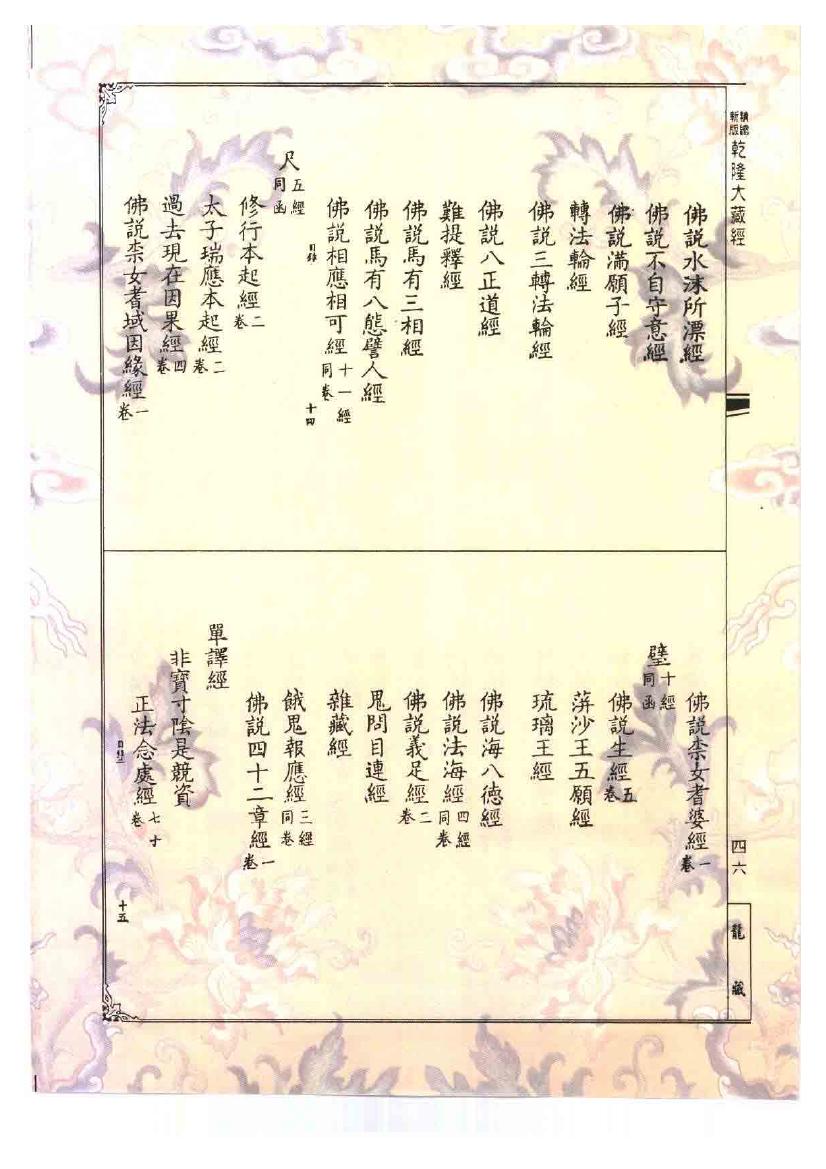 新版
乾隆大藏經
佛說水沫所漂經
佛說不自守意經
佛說滿願子經
轉法輪經
佛說三轉法輪經
佛說八正道經
難提釋經
佛說馬有三相經
佛說馬有八態譬人經
佛說相應相可經 十一經同卷
目錄
十四
尺 五經同函
修行本起經 二卷
太子瑞應本起經 二卷
過去現在因果經 四卷
佛說柰女耆域因緣經 一卷
佛說柰女耆婆經 一卷
璧 十經同函
佛說生經 五卷
蓱沙王五願經
琉璃王經
佛說海八德經
佛說法海經 四經同卷
佛說義足經 二卷
鬼問目連經
雜藏經
餓鬼報應經 三經同卷
佛說四十二章經 一卷
單譯經
非寶寸陰是競資
正法念處經 七十卷
目錄
十五
四六
龍藏